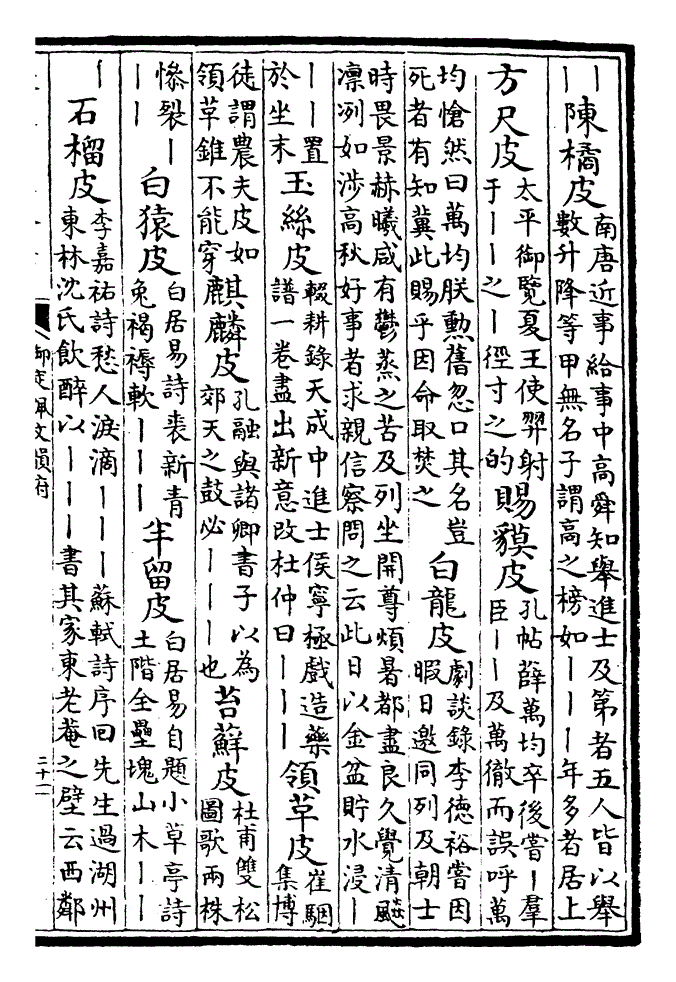 丨丨陳橘皮南唐近事給事中高舜知舉進士及第者五人皆以舉數升降等甲無名子謂高之榜如丨丨丨年多者居上
方尺皮太平御覽夏王使羿射于丨丨之丨徑寸之的賜貘皮孔帖薛萬均卒後嘗丨羣臣丨丨及萬徹而誤呼萬
均愴然曰萬均朕勲舊忽口其名豈死者有知冀此賜乎因命取焚之白龍皮劇談錄李德裕嘗因暇日邀同列及朝士
時畏景赫曦咸有鬱蒸之苦及列坐開尊煩暑都盡良久覺清飈凛冽如涉高秋好事者求親信察問之云此日以金盆貯水浸丨
丨丨置於坐末玉絲皮輟耕錄天成中進士侯寧極戲造藥譜一卷盡出新意改杜仲曰丨丨丨領草皮崔駰集博
徒謂農夫皮如領草錐不能穿麒麟皮孔融與諸卿書子以為郊天之鼓必丨丨丨也苔蘚皮杜甫雙松圖歌兩株
慘裂丨丨丨白猿皮白居易詩裘新青兔褐褥軟丨丨丨半留皮白居易自題小草亭詩土階全壘塊山木丨丨
丨石榴皮李嘉祐詩愁人淚滴丨丨丨蘇軾詩序回先生過湖州東林沈氏飲醉以丨丨丨書其家東老菴之壁云西鄰
御定佩文韻府